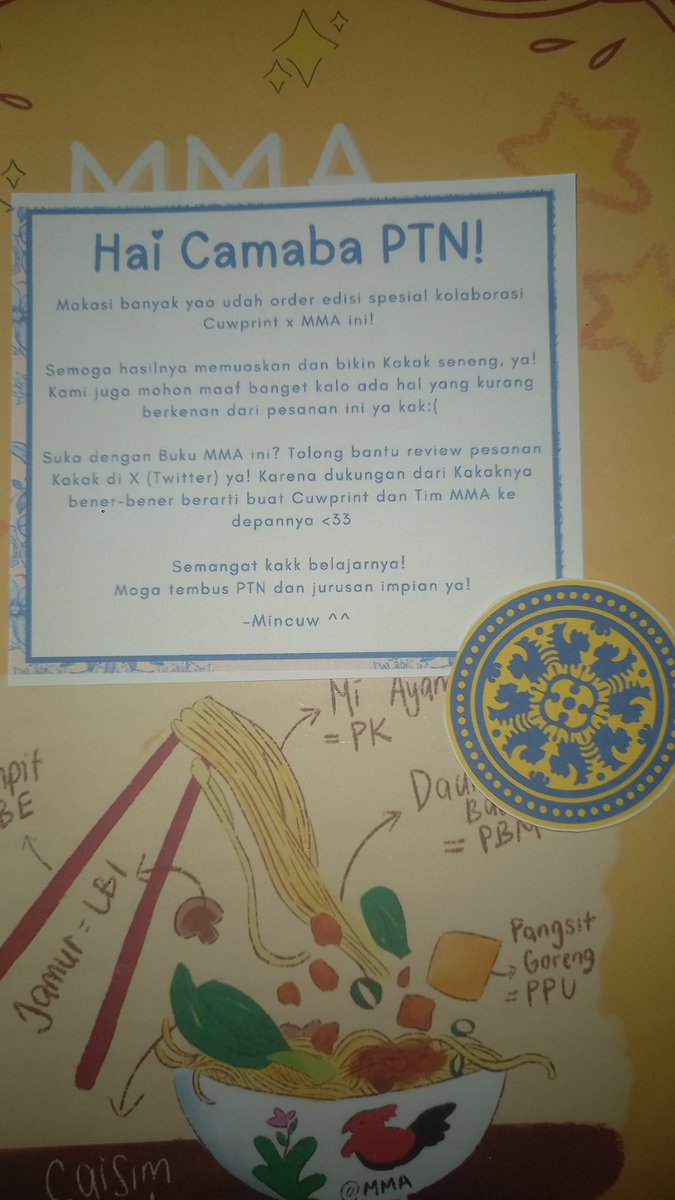 MMA
Hai Camaba PTN!
Makasi banyak yaa udah order edisi spesial kolaborasi
Cuwprint x MMA ini!
Semoga hasilnya memuaskan dan bikin Kakak seneng, ya!
Kami juga mohon maaf banget kalo ada hal yang kurang
berkenan dari pesanan ini ya kak:(
Suka dengan Buku MMA ini? Tolong bantu review pesanan
Kakak di X (Twitter) ya! Karena dukungan dari Kakaknya
bener-bener berarti buat Cuwprint dan Tim MMA ke
depannya <33
Semangat kakk belajarnya!
Moga tembus PTN dan jurusan impian ya!
-Mincuw ^^
Mi Ayam
= PK
= PBM
Jamur = LBI
Pangsit
Goreng
= PPU
Caisim
@MMA